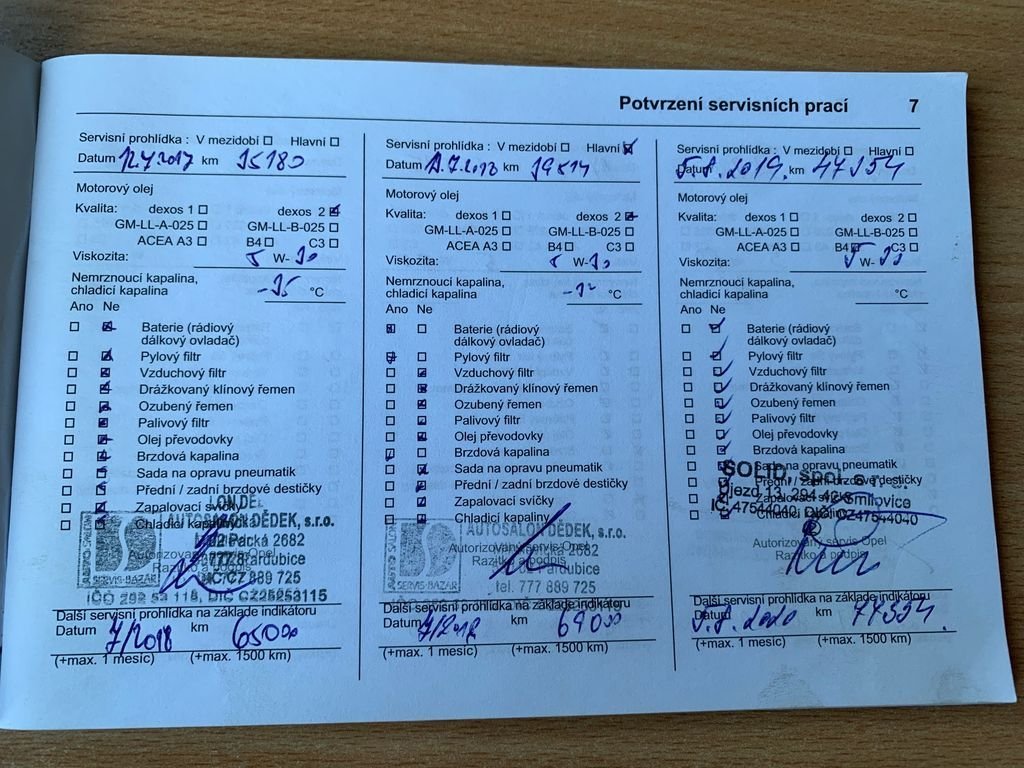 Potvrzení servisních prací 7
Servisní prohlídka : V mezidobí ☐ Hlavní ☐
Datum 12.7.2017 km 35180
Motorový olej
Kvalita: dexos 1 ☐ dexos 2 ☑
GM-LL-A-025 ☐ GM-LL-B-025 ☐
ACEA A3 ☐ B4 ☐ C3 ☐
Viskozita: 5 W-30
Nemrznoucí kapalina,
chladicí kapalina -35 °C
Ano Ne
☐ ☑ Baterie (rádiový
dálkový ovladač)
☐ ☑ Pylový filtr
☐ ☑ Vzduchový filtr
☐ ☑ Drážkovaný klínový řemen
☐ ☑ Ozubený řemen
☐ ☑ Palivový filtr
☐ ☑ Olej převodovky
☐ ☑ Brzdová kapalina
☐ ☑ Sada na opravu pneumatik
☐ ☑ Přední / zadní brzdové destičky
☐ ☑ Zapalovací svíčky
☐ ☑ Chladicí kapaliny
AUTOSALON DĚDEK, s.r.o.
Packá 2682
Pardubice
777 889 725
SERVIS-BAZAR
Autorizovaný servis Opel
Razítko a podpis
DIČ CZ25253115
Další servisní prohlídka na základě indikátoru
Datum 7/2018 km 65000
(+max. 1 měsíc) (+max. 1500 km)
Servisní prohlídka : V mezidobí ☐ Hlavní ☑
Datum 7.2018 km
Motorový olej
Kvalita: dexos 1 ☐ dexos 2 ☑
GM-LL-A-025 ☐ GM-LL-B-025 ☐
ACEA A3 ☐ B4 ☐ C3 ☐
Viskozita: 5 W-30
Nemrznoucí kapalina,
chladicí kapalina °C
Ano Ne
☑ ☐ Baterie (rádiový
dálkový ovladač)
☑ ☐ Pylový filtr
☐ ☑ Vzduchový filtr
☐ ☑ Drážkovaný klínový řemen
☐ ☑ Ozubený řemen
☐ ☑ Palivový filtr
☐ ☑ Olej převodovky
☑ ☐ Brzdová kapalina
☐ ☑ Sada na opravu pneumatik
☐ ☑ Přední / zadní brzdové destičky
☐ ☑ Zapalovací svíčky
☐ ☑ Chladicí kapaliny
AUTOSALON DĚDEK, s.r.o.
2682
Pardubice
tel. 777 889 725
SERVIS-BAZAR
Autorizovaný servis Opel
Razítko a podpis
Další servisní prohlídka na základě indikátoru
Datum km 69000
(+max. 1 měsíc) (+max. 1500 km)
Servisní prohlídka : V mezidobí ☐ Hlavní ☐
Datum 5.8.2019. km 47354
Motorový olej
Kvalita: dexos 1 ☐ dexos 2 ☐
GM-LL-A-025 ☐ GM-LL-B-025 ☐
ACEA A3 ☐ B4 ☑ C3 ☐
Viskozita: 5 W-30
Nemrznoucí kapalina,
chladicí kapalina °C
Ano Ne
☐ ☑ Baterie (rádiový
dálkový ovladač)
☐ ☑ Pylový filtr
☐ ☑ Vzduchový filtr
☐ ☑ Drážkovaný klínový řemen
☐ ☑ Ozubený řemen
☐ ☑ Palivový filtr
☐ ☑ Olej převodovky
☐ ☑ Brzdová kapalina
☐ ☑ Sada na opravu pneumatik
☐ ☑ Přední / zadní brzdové destičky
☐ ☑ Zapalovací svíčky
☐ ☑ Chladicí kapaliny
SOLID, spol. s r.o.
Újezd 13, 294 42 Smilovice
IČ:47544040, DIČ:CZ47544040
Autorizovaný servis Opel
Razítko a podpis
Další servisní prohlídka na základě indikátoru
Datum 5.8.2020 km 77354.
(+max. 1 měsíc) (+max. 1500 km)